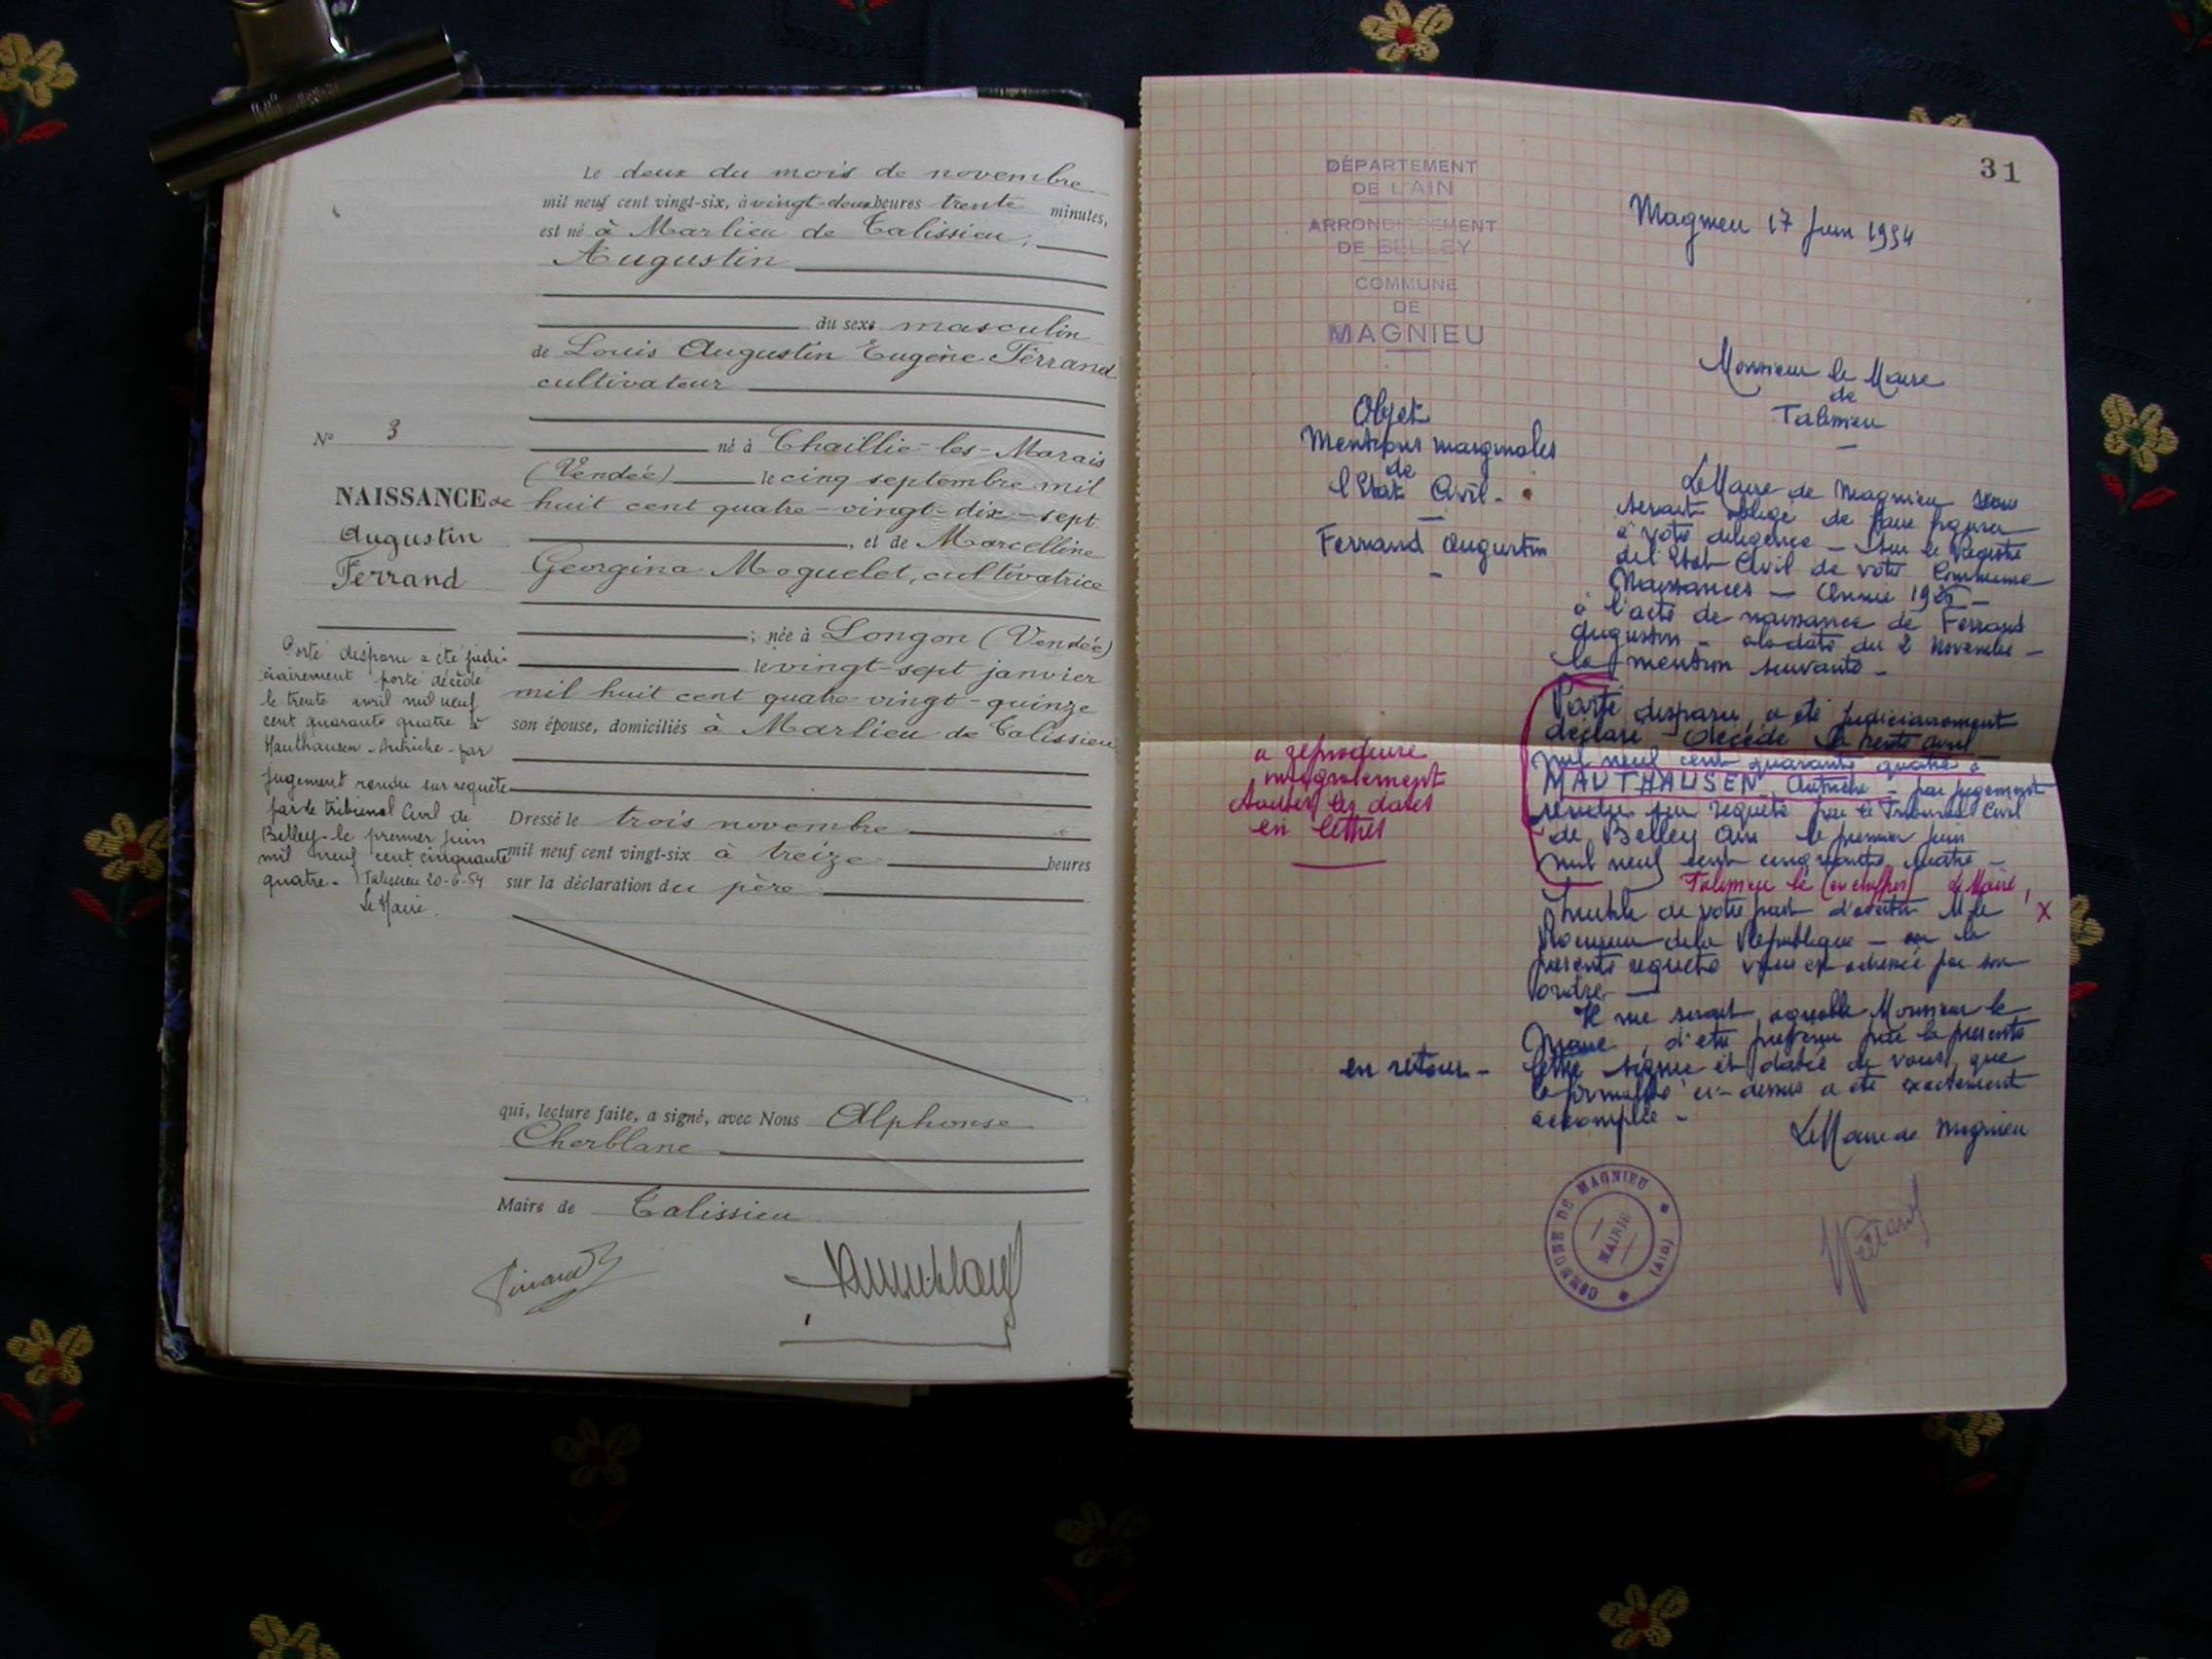 Le deux du mois de novembre
mil neuf cent vingt-six, à vingt-deux heures trente minutes,
est né à Marlieu de Talissieu;
Augustin
du sexe masculin
de Louis Augustin Eugène Ferrand
cultivateur
né à Chaillié-les-Marais
(Vendée) le cinq septembre mil
huit cent quatre-vingt-dix-sept
, et de Marcelline
Georgina Moquelet, cultivatrice
; née à Longon (Vendée)
le vingt-sept janvier
mil huit cent quatre-vingt-quinze
son épouse, domiciliés à Marlieu de Talissieu
Dressé le trois novembre
mil neuf cent vingt-six à treize heures
sur la déclaration du père
qui, lecture faite, a signé, avec Nous Alphonse
Cherblanc
Maire de Talissieu
N° 3
NAISSANCE de
Augustin
Ferrand
Porté disparu a été judi-
ciairement porté décédé
le trente avril mil neuf
cent quarante quatre à
Mauthausen - Autriche - par
jugement rendu sur requête
par le tribunal Civil de
Belley - le premier juin
mil neuf cent cinquante
quatre - Talissieu 20-6-54
Le Maire.
31
DÉPARTEMENT
DE L'AIN
ARRONDISSEMENT
DE BELLEY
COMMUNE
DE
MAGNIEU
Magnieu 17 Juin 1954
Monsieur le Maire
de
Talissieu
Objet
Mentions marginales
de
l'Etat Civil -
Ferrand Augustin
Le Maire de Magnieu vous
serait obligé de faire figurer
à votre diligence - sur le Registre
de l'Etat Civil de votre Commune
Naissances - Année 1926 -
à l'acte de naissance de Ferrand
Augustin - à la date du 2 Novembre -
la mention suivante -
Porté disparu, a été judiciairement
déclaré décédé le trente avril
mil neuf cent quarante quatre à
MAUTHAUSEN, Autriche - par jugement
rendu sur requête par le Tribunal Civil
de Belley Ain le premier juin
mil neuf cent cinquante quatre -
Talissieu le (en chiffres) Le Maire, X
a reproduire
intégralement
toutes les dates
en lettres
Inutile de votre part d'avertir M le
Procureur de la République - la
présente requête vous est adressée par son
ordre -
Il me serait agréable Monsieur le
Maire, d'etre par la presente
en retour - lettre signée et datée de vous, que
la formalité ci-dessus a été exactement
accomplie -
Le Maire de Magnieu
COMMUNE DE MAGNIEU
MAIRIE
(Ain)